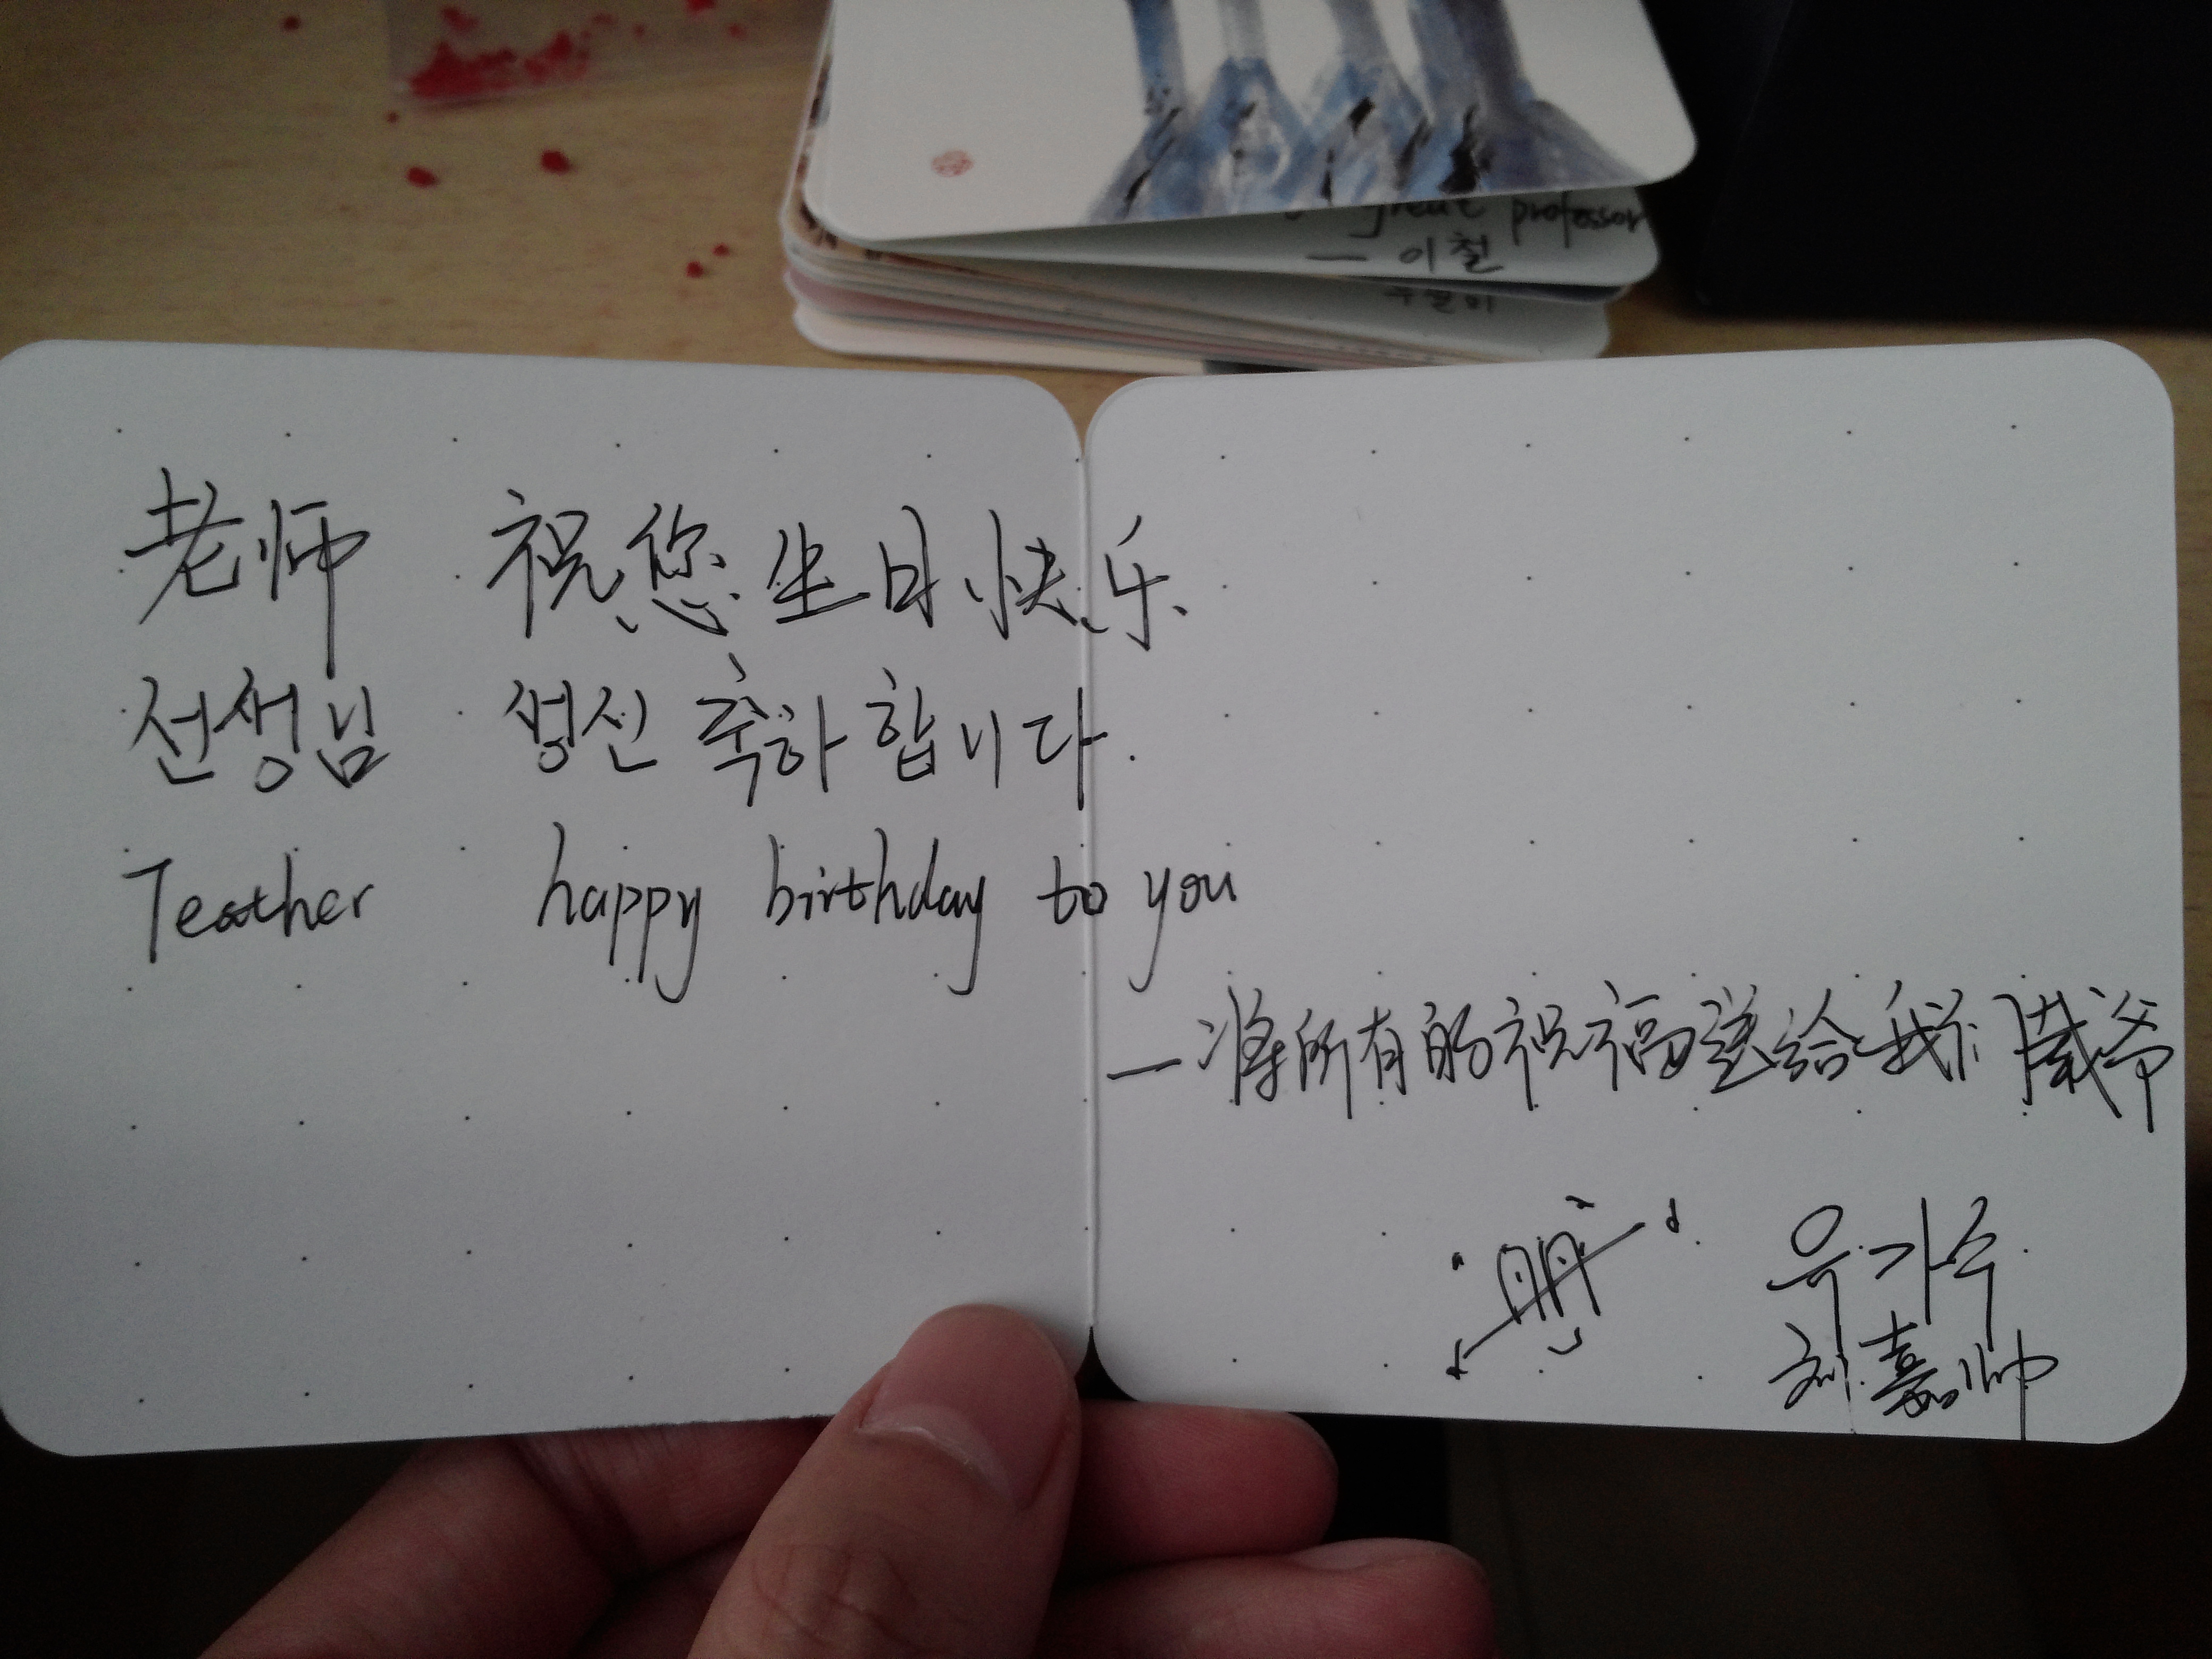 great professor
— 이철
老师 祝您生日快乐
선생님 생신 축하합니다.
Teather happy birthday to you
—将所有的祝福送给我们戚爷
유가수
刘嘉帅